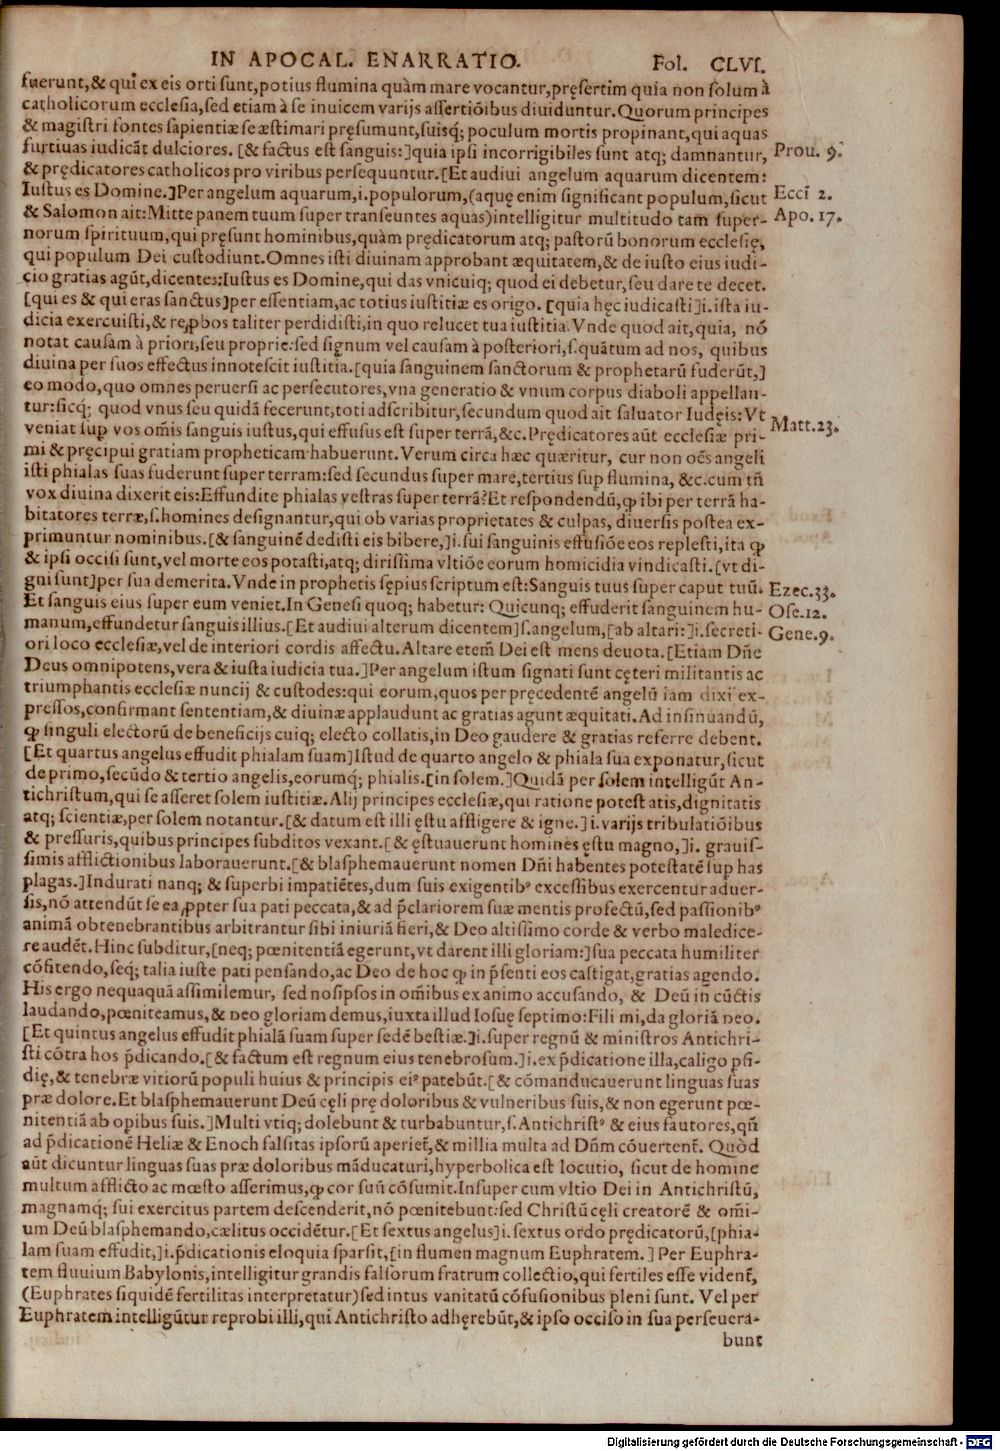 IN APOCAL. ENARRATIO. Fol. CLVI.
fuerunt,& qui ex eis orti sunt,potius flumina quàm mare vocantur,pręsertim quia non solum à
catholicorum ecclesia,sed etiam à se inuicem varijs assertiōibus diuiduntur.Quorum principes
& magistri fontes sapientiæ se æstimari pręsumunt,suisq; poculum mortis propinant,qui aquas
furtiuas iudicāt dulciores. [& factus est sanguis:]quia ipsi incorrigibiles sunt atq; damnantur,
Prou. 9.
& prędicatores catholicos pro viribus persequuntur.[Et audiui angelum aquarum dicentem:
Iustus es Domine.]Per angelum aquarum,i.populorum,(aquę enim significant populum,sicut
Eccī 2.
& Salomon ait:Mitte panem tuum super transeuntes aquas)intelligitur multitudo tam super-
Apo. 17.
norum spirituum,qui pręsunt hominibus,quàm prędicatorum atq; pastorū bonorum ecclesię,
qui populum Dei custodiunt.Omnes isti diuinam approbant æquitatem,& de iusto eius iudi-
cio gratias agūt,dicentes:Iustus es Domine,qui das vnicuiq; quod ei debetur,seu dare te decet.
[qui es & qui eras sanctus]per essentiam,ac totius iustitiæ es origo. [quia hęc iudicasti]i.ista iu-
dicia exercuisti,& reꝓbos taliter perdidisti,in quo relucet tua iustitia.Vnde quod ait,quia, nō
notat causam à priori,seu proprie:sed signum vel causam à posteriori,s.quātum ad nos, quibus
diuina per suos effectus innotescit iustitia.[quia sanguinem sanctorum & prophetarū fuderūt,]
eo modo,quo omnes peruersi ac persecutores,vna generatio & vnum corpus diaboli appellan-
tur:sicq; quod vnus seu quidā fecerunt,toti adscribitur,secundum quod ait saluator Iudęis:Vt
veniat sup vos om̄is sanguis iustus,qui effusus est super terrā,&c.Prędicatores aūt ecclesiæ pri-
Matt.23.
mi & pręcipui gratiam propheticam habuerunt.Verum circa hæc quæritur, cur non oēs angeli
isti phialas suas fuderunt super terram:sed secundus super mare,tertius sup flumina, &c.cum tn̄
vox diuina dixerit eis:Effundite phialas vestras super terrā?Et respondendū,ꝙ ibi per terrā ha-
bitatores terræ,s.homines designantur,qui ob varias proprietates & culpas, diuersis postea ex-
primuntur nominibus.[& sanguinē dedisti eis bibere,]i.sui sanguinis effusiōe eos replesti,ita ꝙ
& ipsi occisi sunt,vel morte eos potasti,atq; dirissima vltiōe eorum homicidia vindicasti.[vt di-
gni sunt]per sua demerita.Vnde in prophetis sępius scriptum est:Sanguis tuus super caput tuū.
Ezec.33.
Et sanguis eius super eum veniet.In Genesi quoq; habetur: Quicunq; effuderit sanguinem hu-
Ose.12.
manum,effundetur sanguis illius.[Et audiui alterum dicentem]s.angelum,[ab altari:]i.secreti-
Gene.9.
ori loco ecclesiæ,vel de interiori cordis affectu.Altare etem̄ Dei est mens deuota.[Etiam Dn̄e
Deus omnipotens,vera & iusta iudicia tua.]Per angelum istum signati sunt cęteri militantis ac
triumphantis ecclesiæ nuncij & custodes:qui eorum,quos per pręcedentē angelū iam dixi ex-
pressos,confirmant sententiam,& diuinæ applaudunt ac gratias agunt æquitati.Ad insinuandū,
ꝙ singuli electorū de beneficijs cuiq; electo collatis,in Deo gaudere & gratias referre debent.
[Et quartus angelus effudit phialam suam]Istud de quarto angelo & phiala sua exponatur,sicut
de primo,secūdo & tertio angelis,eorumq; phialis.[in solem.]Quidā per solem intelligūt An-
tichristum,qui se asseret solem iustitiæ.Alij principes ecclesiæ,qui ratione potestatis,dignitatis
atq; scientiæ,per solem notantur.[& datum est illi ęstu affligere & igne.]i.varijs tribulatiōibus
& pressuris,quibus principes subditos vexant.[& ęstuauerunt homines ęstu magno,]i. grauis-
simis afflictionibus laborauerunt.[& blasphemauerunt nomen Dn̄i habentes potestatē sup has
plagas.]Indurati nanq; & superbi impatiētes,dum suis exigentibꝰ excessibus exercentur aduer-
sis,nō attendūt se ea ꝓpter sua pati peccata,& ad p̄clariorem suæ mentis profectū,sed passionibꝰ
animā obtenebrantibus arbitrantur sibi iniuriā fieri,& Deo altissimo corde & verbo maledice-
re audēt.Hinc subditur,[neq; pœnitentiā egerunt,vt darent illi gloriam:]sua peccata humiliter
cōfitendo,seq; talia iuste pati pensando,ac Deo de hoc ꝙ in p̄senti eos castigat,gratias agendo.
His ergo nequaquā assimilemur, sed nosipsos in om̄ibus ex animo accusando, & Deū in cūctis
laudando,pœniteamus,& Deo gloriam demus,iuxta illud Iosuę septimo:Fili mi,da gloriā Deo.
[Et quintus angelus effudit phialā suam super sedē bestiæ.]i.super regnū & ministros Antichri-
sti cōtra hos p̄dicando.[& factum est regnum eius tenebrosum.]i.ex p̄dicatione illa,caligo pfi-
dię,& tenebræ vitiorū populi huius & principis eiꝰ patebūt.[& cōmanducauerunt linguas suas
præ dolore.Et blasphemauerunt Deū cęli prę doloribus & vulneribus suis,& non egerunt pœ-
nitentiā ab opibus suis.]Multi vtiq; dolebunt & turbabuntur,s.Antichristꝰ & eius fautores,qn̄
ad p̄dicationē Heliæ & Enoch falsitas ipsorū aperiet̄,& millia multa ad Dn̄m cōuertent̄. Quòd
aūt dicuntur linguas suas præ doloribus māducaturi,hyperbolica est locutio, sicut de homine
multum afflicto ac mœsto asserimus,ꝙ cor suū cōsumit.Insuper cum vltio Dei in Antichristū,
magnamq; sui exercitus partem descenderit,nō pœnitebunt:sed Christū cęli creatorē & om̄i-
um Deū blasphemando,cælitus occidētur.[Et sextus angelus]i.sextus ordo prędicatorū,[phia-
lam suam effudit,]i.p̄dicationis eloquia sparsit,[in flumen magnum Euphratem.] Per Euphra-
tem fluuium Babylonis,intelligitur grandis falsorum fratrum collectio,qui fertiles esse vident̄,
(Euphrates siquidē fertilitas interpretatur)sed intus vanitatū cōfusionibus pleni sunt. Vel per
Euphratem intelligūtur reprobi illi,qui Antichristo adhęrebūt,& ipso occiso in sua perseuera-
bunt
Digitalisierung gefördert durch die Deutsche Forschungsgemeinschaft - DFG